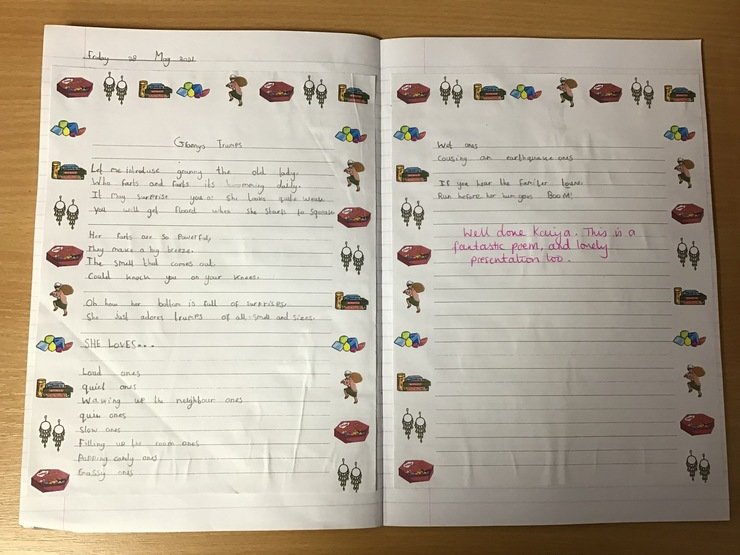 Friday 28 May 2021
Grannys Trumps
Let me introduse granny the old lady.
Who farts and farts its booming daily.
It may surprise you as she looks quite weak
You will get floord when she starts to squeak
Her farts are so powerful,
They make a big breeze.
The smell that comes out
Could knock you on your knees.
Oh how her bottom is full of surprises.
She just adores trumps of all small and sizes.
SHE LOVES...
Loud ones
quiet ones
Waking up the neighbour ones
quiw ones
Slow ones
Filling up the room ones
Popping candy ones
Gassy ones
Wet ones
Cousing an earthquake ones
If you hear the familer
Run before her bum goes BOOM!
Well done Kaiya. This is a
fantastic poem, and lovely
presentation too.